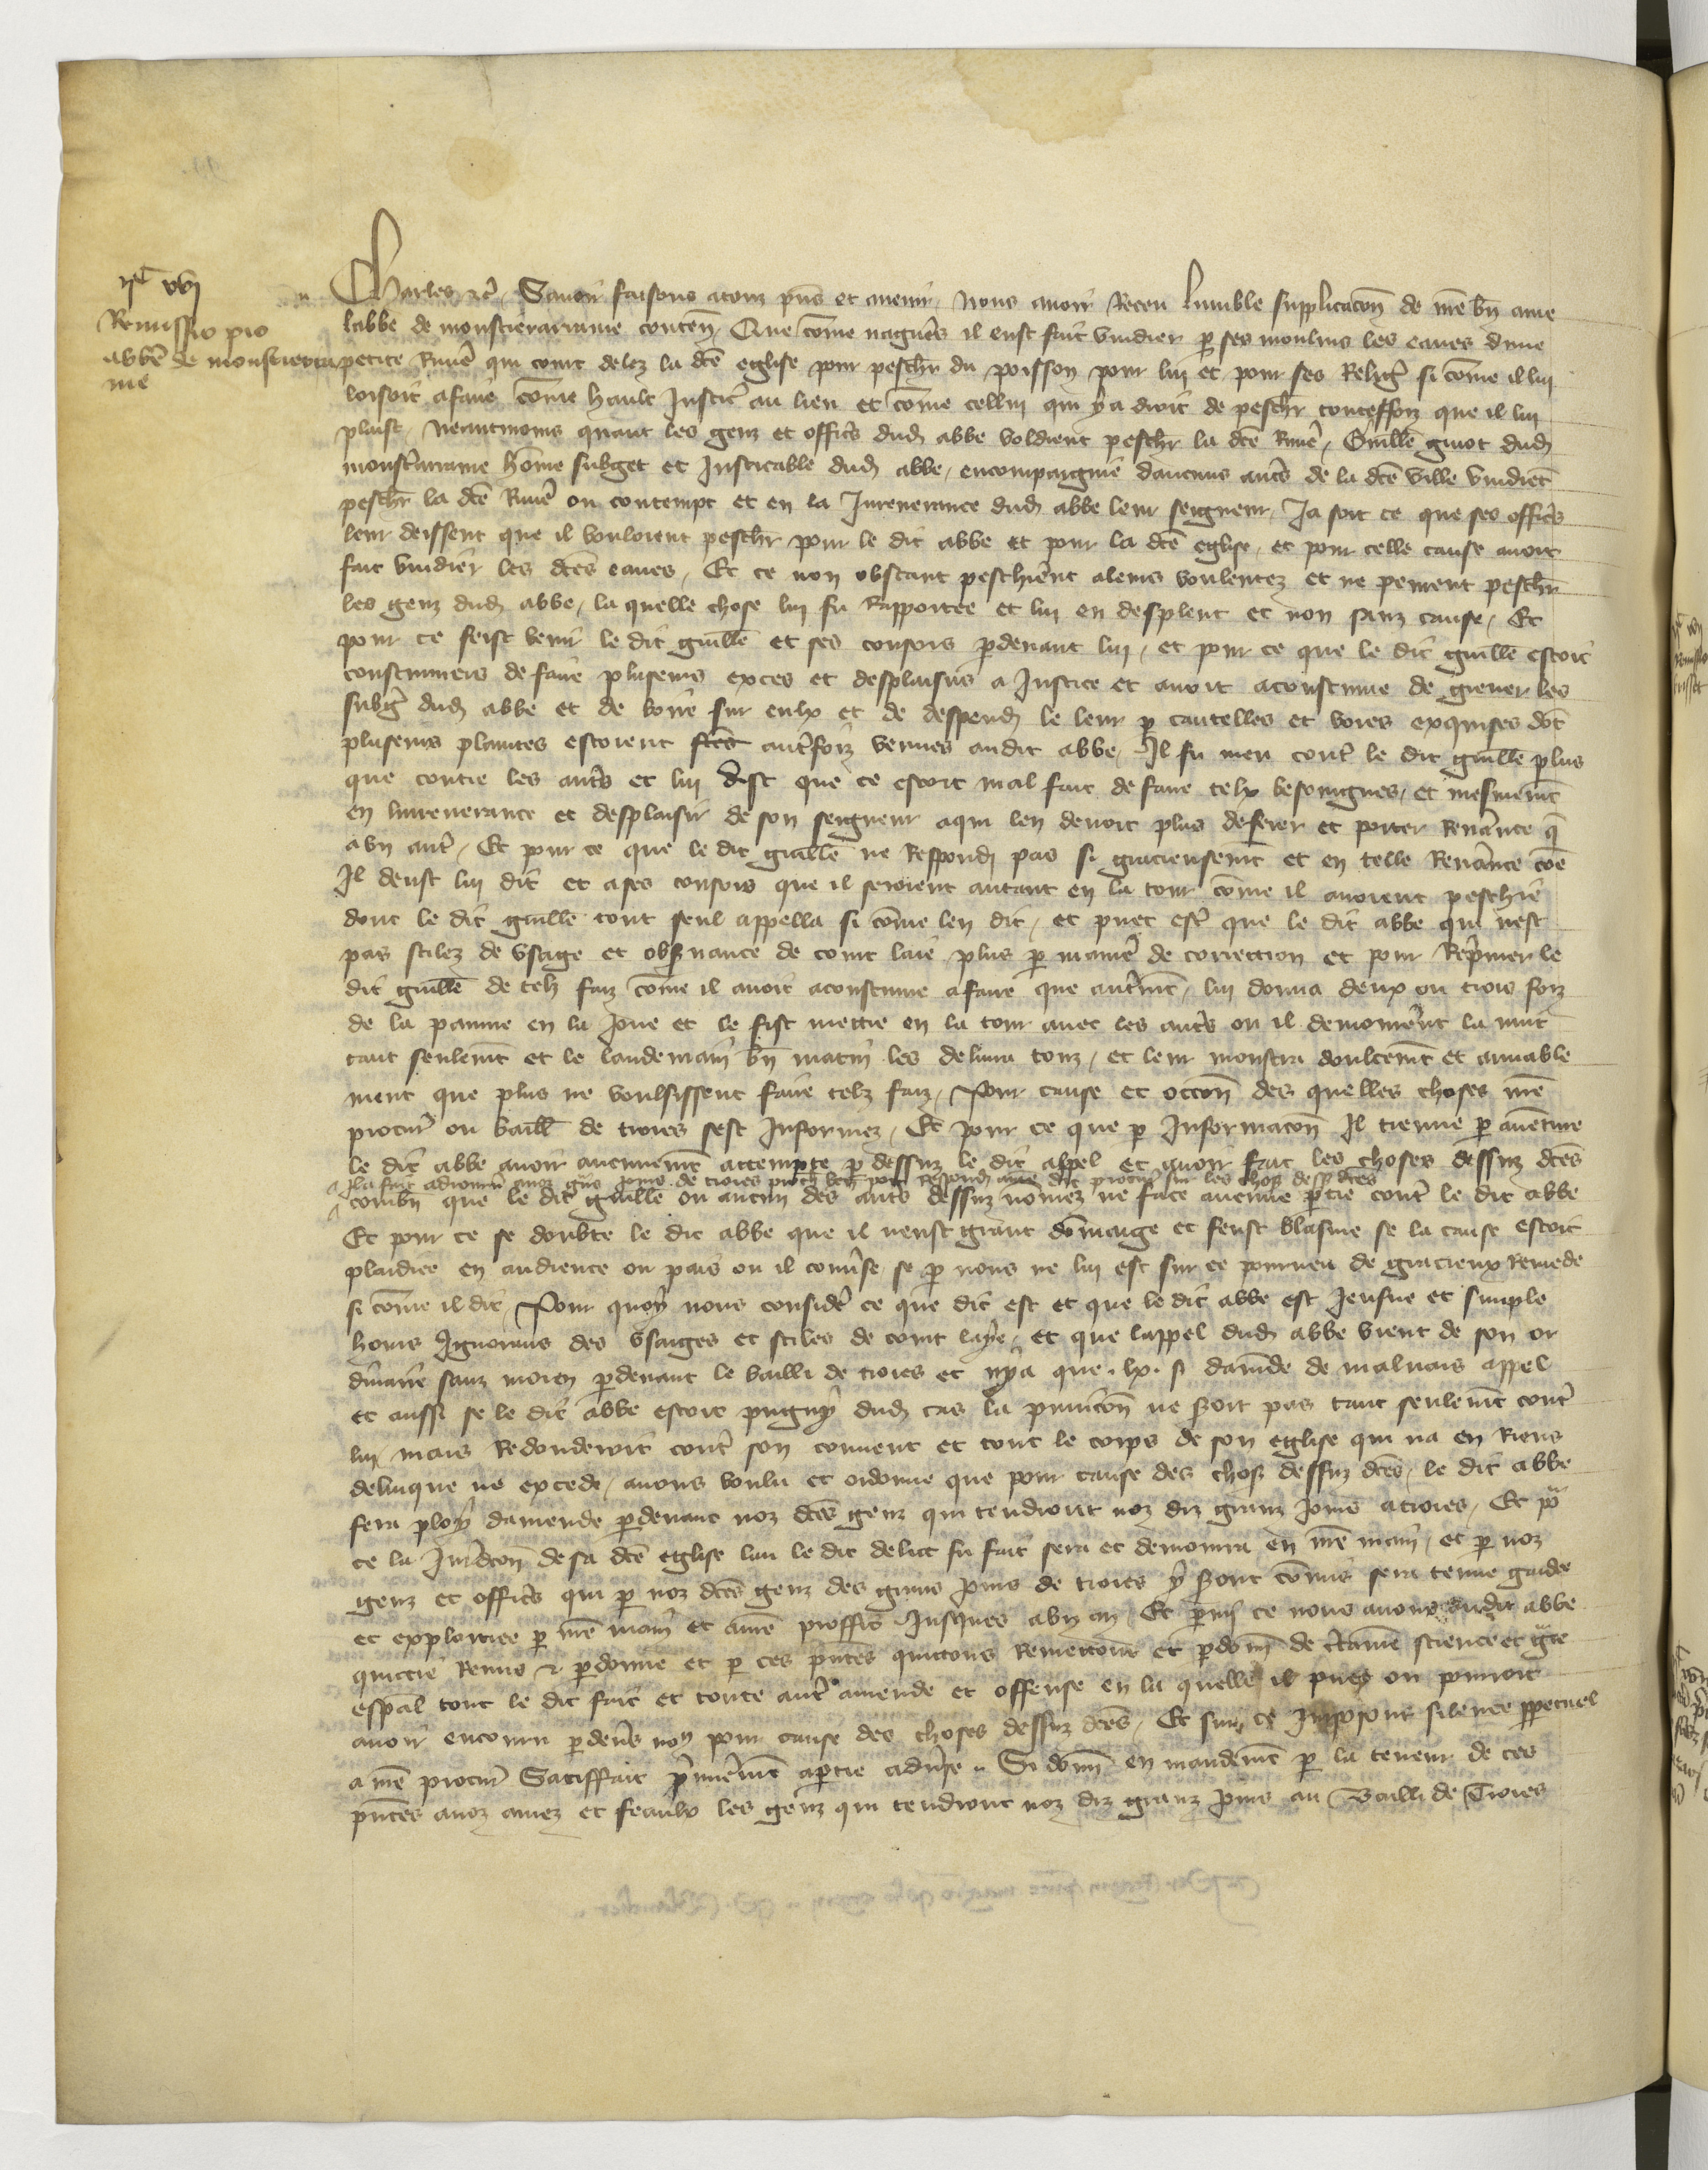 IIc XVI
Remissio pro
abbe de monstierara
me
Charles etc. Savoir faisons a touz pns et avenir, nous avoir receu lumble supplicacon de nre bn ame
labbe de monstierarrame conten, Que come nagueres il eust fait vuidier p ses moulins les eaues dune
petite Rivie qui court delez la dce eglise pour pescher du poisson pour lui et pour ses Relig si come il lui
loisoit afaire come hault Justic au lieu et come cellui qui y a droit de pescher toutesfoiz que il lui
plaist, neantmoins quant les genz et offics dud abbe voldient pescher la dce Rivie, Guille guiot dud
monstarrame home subget et Justicable dud abbe, encompaignie daucuns autres de la dce ville vindret
pescher la dce Rivie ou contempt et en la Inreverance dud abbe leur seigneur, Ja soit ce que ses offics
leur deissent que il vouloient pescher pour le dit abbe et pour la dce eglise, et pour celle cause avoit
fait vuidier les dces eaues, Et ce non obstant peschierent aleurs voulentez et ne peurent pescher
les genz dud abbe, la quelle chose lui fu Rapportee et lui en despleut et non sanz cause, Et
pour ce feist venir le dit guille et ses consors pdevant lui, et pour ce que le dit guille estoit
coustumiers de faire plusieurs exces et desplaisirs a Justice et avoit acoustume de grever les
subgs dud abbe et de boire sur eulx et de despend le leur p cautelles et voies exquises dot
plusieurs plaintes estoient autrefoiz venues audit abbe, Il fu meu contre le dit guille plus
que contre les autres et lui dist que ce estoit mal fait de faire telx besoingnes, et mesmemt
en linreverance et desplaisir de son seigneur aqui len devoit plus deferer et porter Reverance q
a un autre, Et pour ce que le dit guille ne Respondi pas si gracieusemt et en telle Reverance coe
Il deust lui dit et a ses consors que il seroient autant en la tour come il avoient peschie
dont le dit guille tout seul appella si come len dit, et puet estre que le dit abbe qui nest
pas stilez de usage et observance de court laie plus p maniere de correction et pour Reprimer le
dit guille de telz faiz come il avoit acoustume afaire que autremt, lui donna deux ou trois foiz
de la paume en la Joue et le fist mettre en la tour avec les autres ou il demorerent la nuit
tant seulemt et le landemain bn matin les delivra touz, et leur monstra doulcemt et amiable
ment que plus ne voulsissent faire telz faiz, Pour cause et occon des quelles choses nre
procur ou baill de troies sest Informez, Et pour ce que p Informacon Il treuve p aventure
le dit abbe avoir aucunemt attempte p dessuz le dit appel et avoir fait les choses dessuz dces
la fait adiourn a noz grans Jours de troies proch ven pour Respond a nre dit procur sur les choses dess dces
combn que le dit guille ou aucun des autres dessuz nomez ne face aucune ptie contre le dit abbe
Et pour ce se doubte le dit abbe que il neust grant domaige et feust blasme se la cause estoit
plaidiee en audience ou pais ou il converse, se p nous ne lui est sur ce pourveu de gracieux Remede
si come il dit, Pour quoy nous consider ce que dit est et que le dit abbe est Jeusne et simple
homs Ignorans des usaiges et stiles de court laye, et que lappel dud abbe vient de son or
dinaire sanz moien pdevant le bailli de troies et ny a que .lx. s damde de malvais appel
et aussi se le dit abbe estoit pugny dud cas la punicon ne seroit pas tant seulemt contre
lui, mais Redonderoit contre son couvent et tout le corps de son eglise qui na en Riens
delinque ne excede, avons voulu et ordonne que pour cause des choses dessuz dces, le dit abbe
fera ploy damende pdevant noz dces genz qui tendront noz diz granz Jours a troies, Et pour
ce la Juridicon de sa dce eglise lau le dit delict fu fait sera et demourra en nre main, et p noz
genz et offics qui p noz dces genz des grans Jours de troies y seront comis sera tenue gardee
et exploitiee p nre main et a nre proffit Jusques a un an, Et pmi ce nous avons audit abbe
quittie Remis et pdonne et p ces pntes quittons Remettons et pdonn de certaine science et grace
espal tout le dit fait et toute autre amende et offense en la quelle il puet ou pourroit
avoir encouru pdevs nous pour cause des choses dessuz dces, Et sur ce Imposons silence ppetuel
a nre procur Satiffait premieremt a ptie adverse. Si donn en mandemt p la teneur de ces
pntes a noz amez et feaulx les genz qui tendront noz diz granz Jours au Bailli de Troies